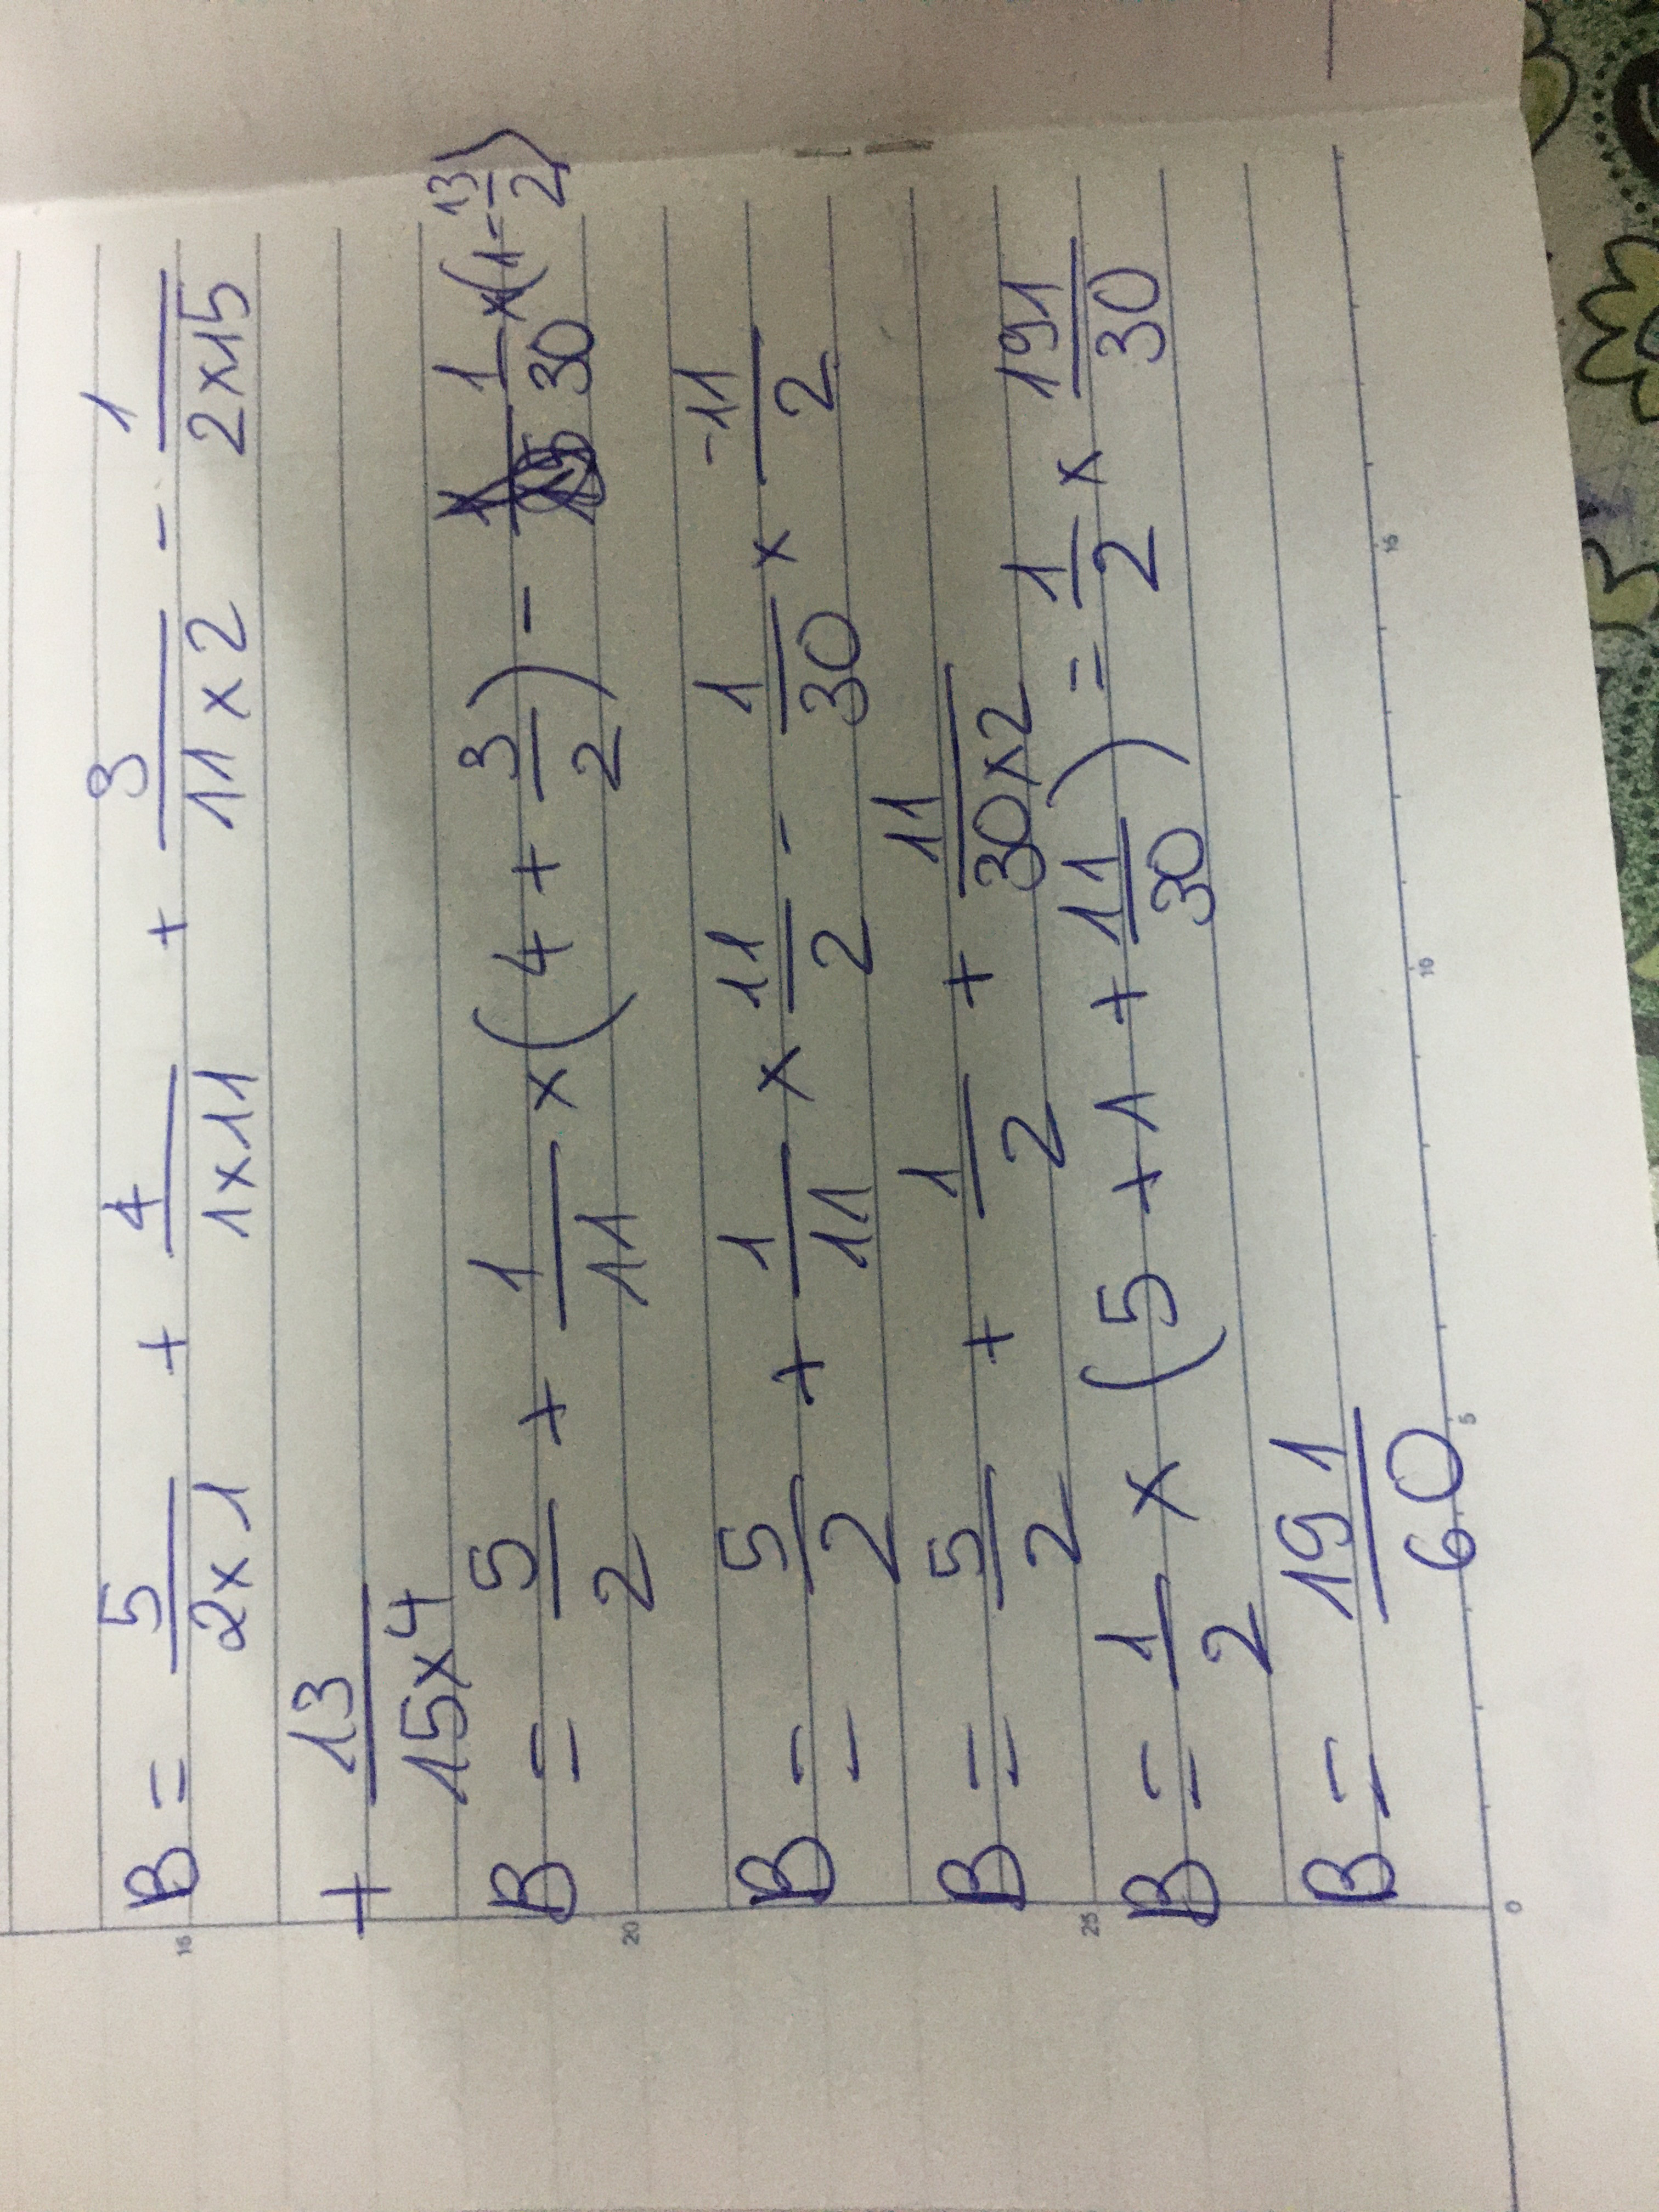 B = 5/(2×1) + 4/(1×11) + 3/(11×2) - 1/(2×15)
+ 13/(15×4)
B = 5/2 + 1/11 × (4 + 3/2) - 1/30 × (1 - 13/2)
B = 5/2 + 1/11 × 11/2 - 1/30 × -11/2
B = 5/2 + 1/2 + 11/(30×2)
B = 1/2 × (5 + 1 + 11/30) = 1/2 × 191/30
B = 191/60
15
20
25
0 5 10 15